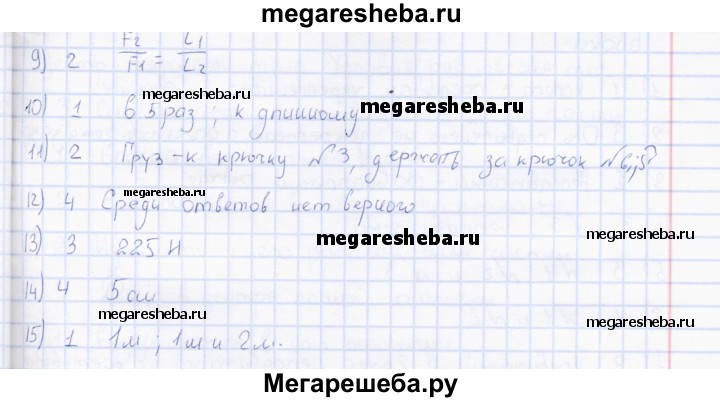 megaresheba.ru
9) 2 F2/F1 = L1/L2
megaresheba.ru megaresheba.ru
10) 1 в 5 раз; к длинному megaresheba.ru
11) 2 Груз – к крючку №3, держать за крючок
megaresheba.ru
12) 4 Среди ответов нет верного
megaresheba.ru
13) 3 225 Н megaresheba.ru
14) 4 5 см
megaresheba.ru megaresheba.ru
15) 1 1м; 1м и 2м.
Мегарешеба.ру